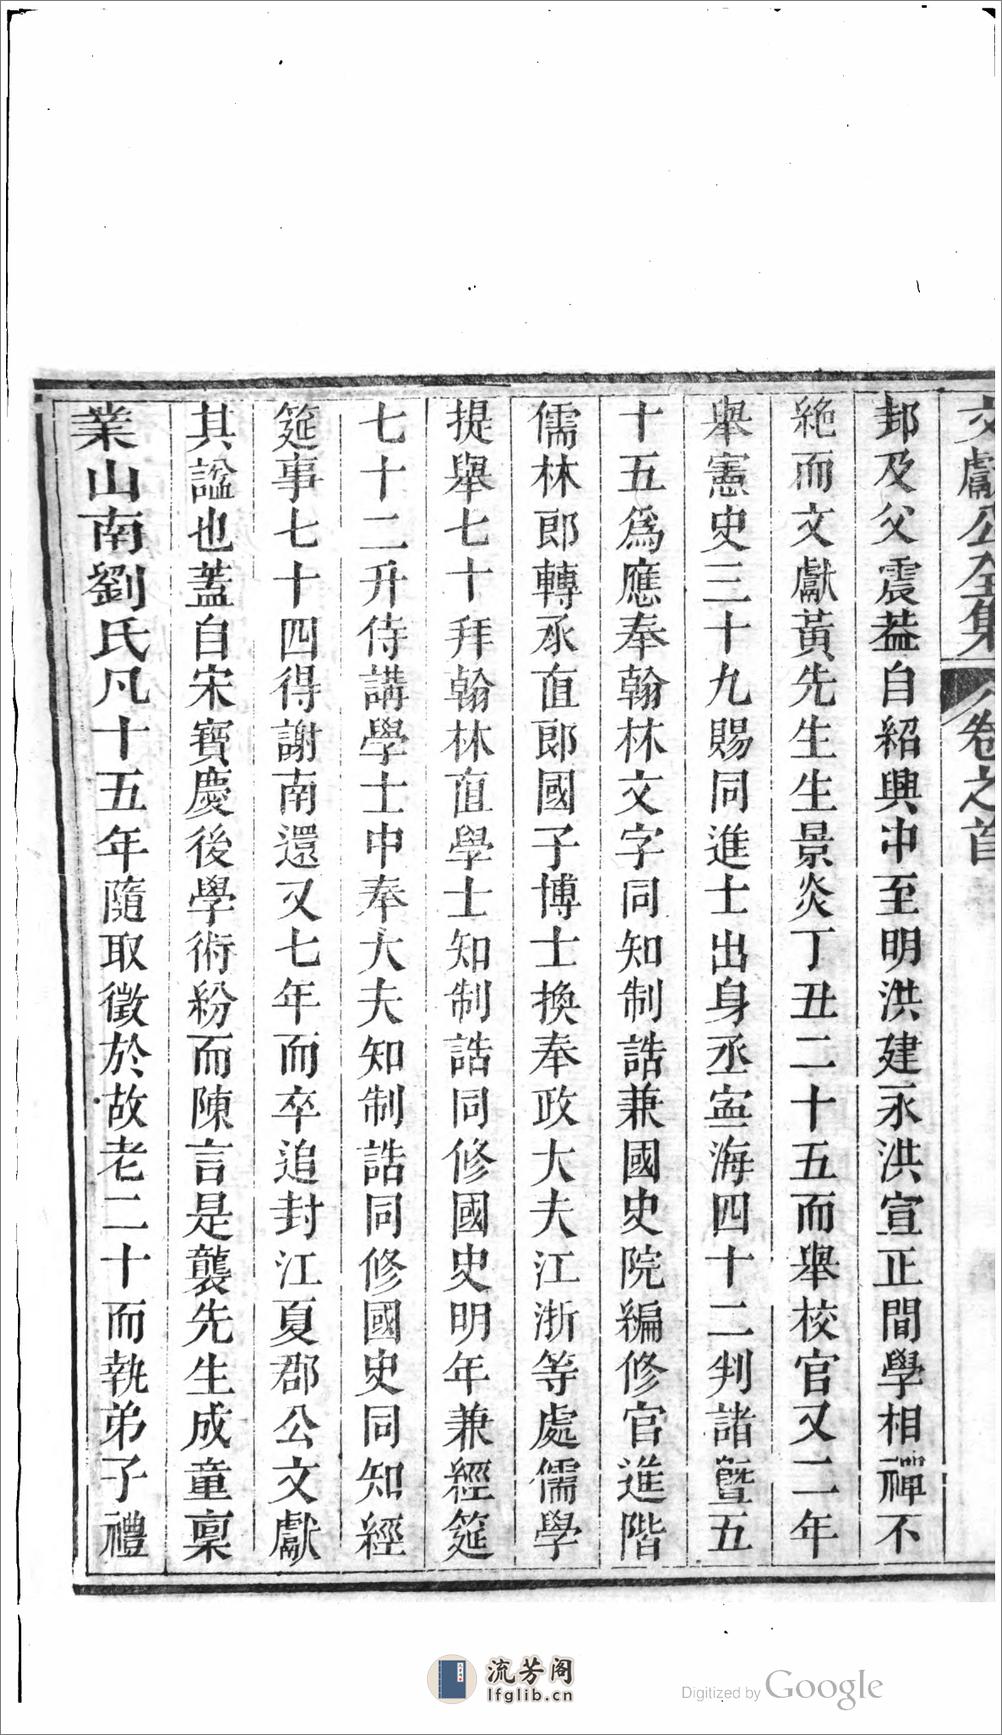 文獻公全集 卷之首
邽及父震蓋自紹興中至明洪建永洪宣正間學相禪不
絶而文獻黃先生生景炎丁丑二十五而舉校官又二年
舉憲史三十九賜同進士出身丞寍海四十二判諸暨五
十五爲應奉翰林文字同知制誥兼國史院編修官進階
儒林郎轉承直郎國子博士換奉政大夫江浙等處儒學
提舉七十拜翰林直學士知制誥同修國史明年兼經筵
七十二升侍講學士中奉大夫知制誥同修國史同知經
筵事七十四得謝南還又七年而卒追封江夏郡公文獻
其諡也蓋自宋寶慶後學術紛而陳言是襲先生成童稟
業山南劉氏凡十五年隨取徵於故老二十而執弟子禮
流芳阁
lfglib.cn
Digitized by Google